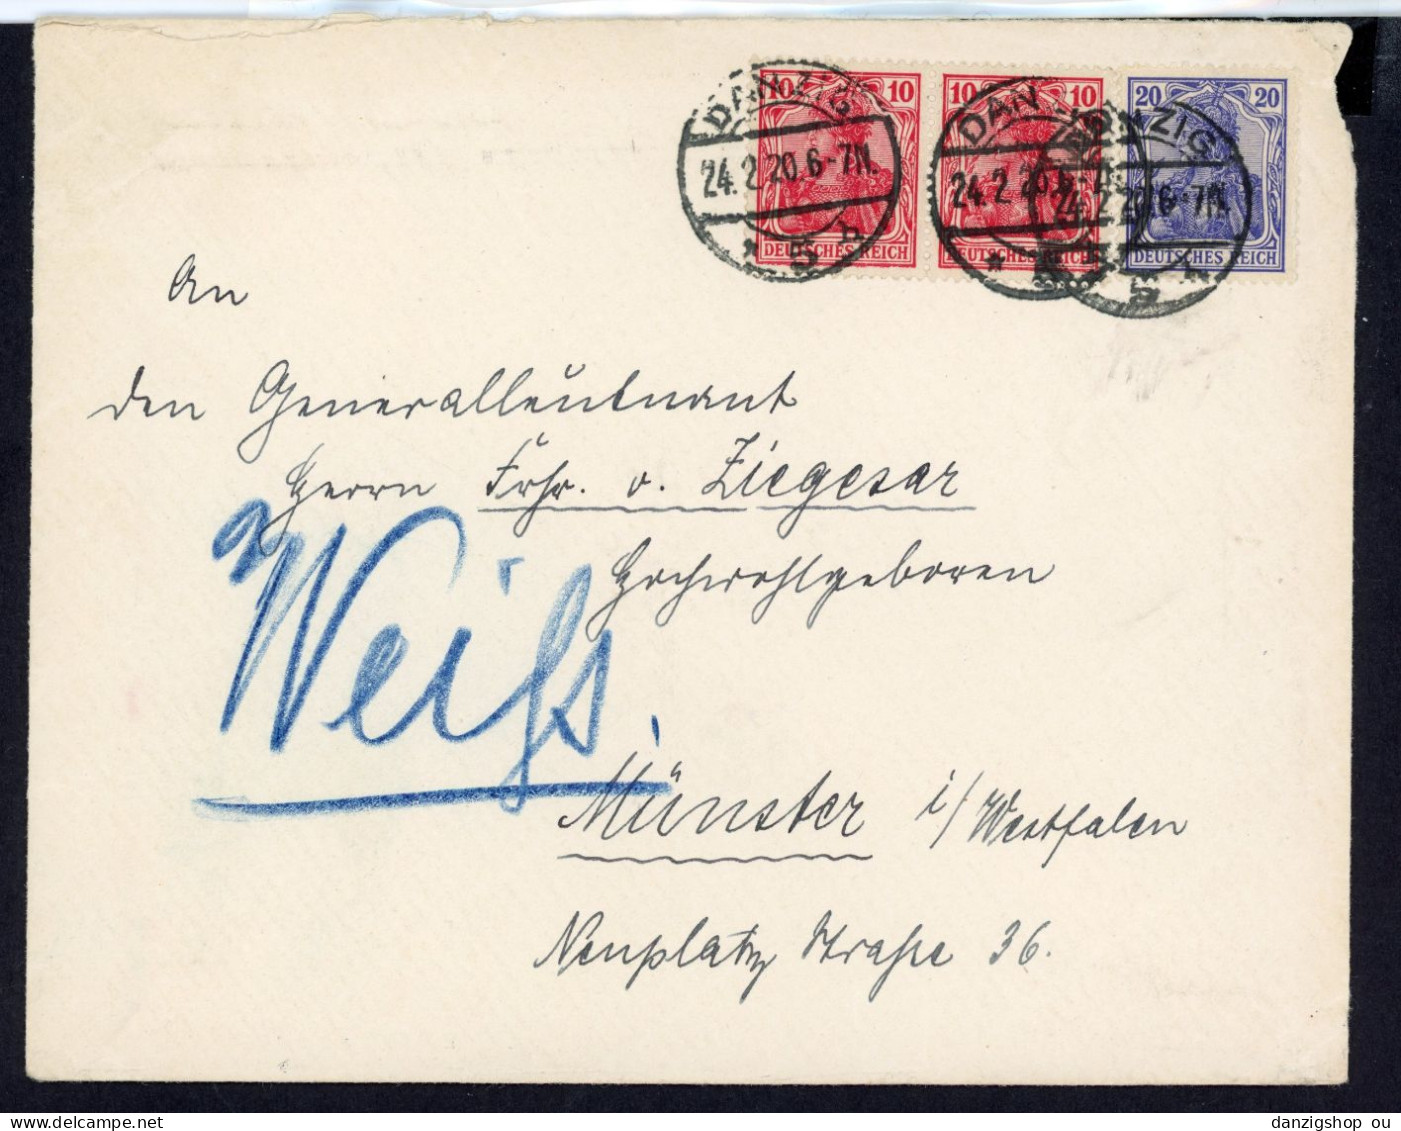 10 10 10 10 20 20
DEUTSCHES REICH DEUTSCHES REICH DEUTSCHES REICH
DANZIG
24.2.20.6-7N.
* 5 h
DANZIG
24.2.20.6-7N.
* 5 h
An
den Generalleutnant
Herrn Frhr. v. Ziegesar
Hochwohlgeboren
Weiß.
Münster i/Westfalen
Neuplatz Straße 36.
danzigshop ou